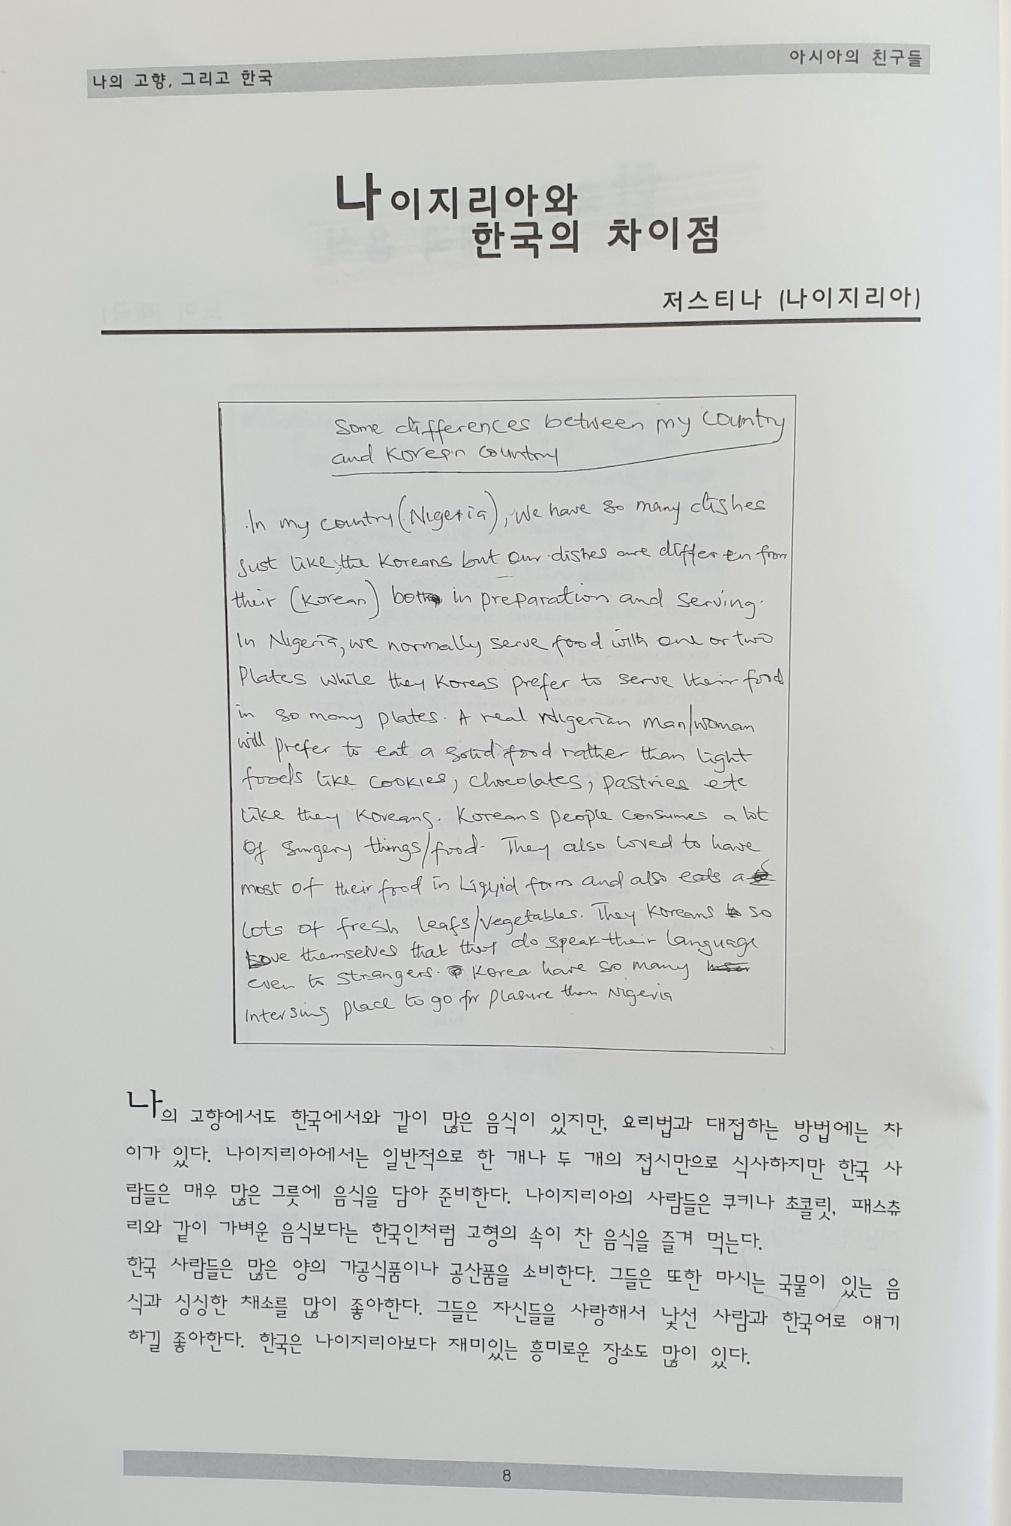 나의 고향, 그리고 한국
아시아의 친구들
나이지리아와
한국의 차이점
저스티나 (나이지리아)
Some differences between my Country
and Korean Country
In my country (Nigeria), we have so many dishes
just like the Koreans but our dishes are differen from
their (Korean) both in preparation and serving.
In Nigeria, we normally serve food with one or two
Plates while they Koreas prefer to serve their food
in so many plates. A real Nigerian man/woman
will prefer to eat a solid food rather than light
foods like cookies, chocolates, pastries etc
like they Koreans. Koreans people consumes a lot
of sungery things/food. They also loved to have
most of their food in Liquid form and also eats a
Lots of fresh leafs/vegetables. They Koreans so
love themselves that they do speak their language
even to strangers. Korea have so many
intersing place to go for plasure than Nigeria
나의 고향에서도 한국에서와 같이 많은 음식이 있지만, 요리법과 대접하는 방법에는 차
이가 있다. 나이지리아에서는 일반적으로 한 개나 두 개의 접시만으로 식사하지만 한국 사
람들은 매우 많은 그릇에 음식을 담아 준비한다. 나이지리아의 사람들은 쿠키나 초콜릿, 패스츄
리와 같이 가벼운 음식보다는 한국인처럼 고형의 속이 찬 음식을 즐겨 먹는다.
한국 사람들은 많은 양의 가공식품이나 공산품을 소비한다. 그들은 또한 마시는 국물이 있는 음
식과 싱싱한 채소를 많이 좋아한다. 그들은 자신들을 사랑해서 낯선 사람과 한국어로 얘기
하길 좋아한다. 한국은 나이지리아보다 재미있는 흥미로운 장소도 많이 있다.
8